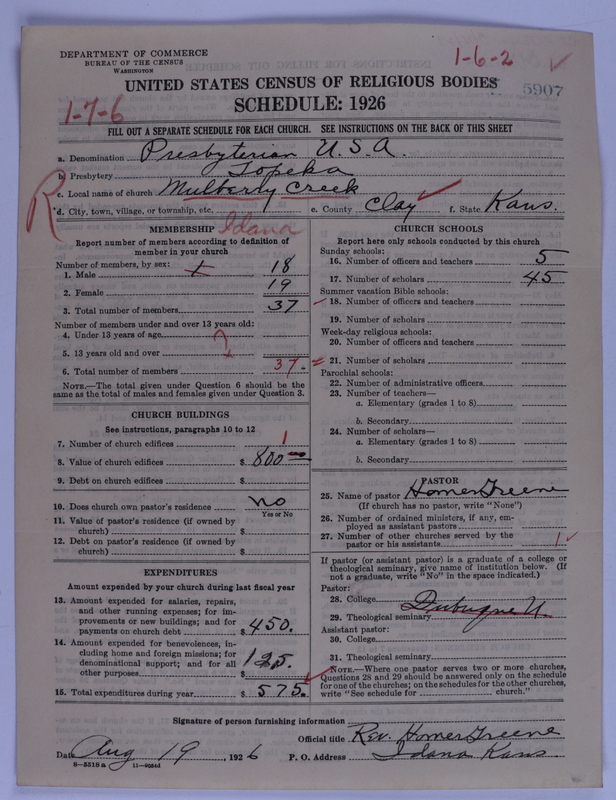 DEPARTMENT OF COMMERCE
BUREAU OF THE CENSUS
WASHINGTON
1-6-2
UNITED STATES CENSUS OF RELIGIOUS BODIES
5907
SCHEDULE: 1926
1-7-6
FILL OUT A SEPARATE SCHEDULE FOR EACH CHURCH. SEE INSTRUCTIONS ON THE BACK OF THIS SHEET
a. Denomination Presbyterian U.S.A.
b. Presbytery Topeka
c. Local name of church Mulberry Creek
R
d. City, town, village, or township, etc. e. County Clay f. State Kans.
Idana
MEMBERSHIP
Report number of members according to definition of
member in your church
Number of members, by sex:
1. Male 18
2. Female 19
3. Total number of members 37
Number of members under and over 13 years old:
4. Under 13 years of age
5. 13 years old and over
6. Total number of members 37
NOTE.—The total given under Question 6 should be the
same as the total of males and females given under Question 3.
CHURCH BUILDINGS
See instructions, paragraphs 10 to 12
7. Number of church edifices 1
8. Value of church edifices $ 800
9. Debt on church edifices $
10. Does church own pastor's residence no
Yes or No
11. Value of pastor's residence (if owned by
church) $
12. Debt on pastor's residence (if owned by
church) $
EXPENDITURES
Amount expended by your church during last fiscal year
13. Amount expended for salaries, repairs,
and other running expenses; for im-
provements or new buildings; and for
payments on church debt $ 450.
14. Amount expended for benevolences, in-
cluding home and foreign missions; for
denominational support; and for all
other purposes $ 125.
15. Total expenditures during year $ 575.
CHURCH SCHOOLS
Report here only schools conducted by this church
Sunday schools:
16. Number of officers and teachers 5
17. Number of scholars 45
Summer vacation Bible schools:
18. Number of officers and teachers
19. Number of scholars
Week-day religious schools:
20. Number of officers and teachers
21. Number of scholars
Parochial schools:
22. Number of administrative officers
23. Number of teachers—
a. Elementary (grades 1 to 8)
b. Secondary
24. Number of scholars—
a. Elementary (grades 1 to 8)
b. Secondary
PASTOR
25. Name of pastor Homer Greene
(If church has no pastor, write "None")
26. Number of ordained ministers, if any, em-
ployed as assistant pastors
27. Number of other churches served by the
pastor or his assistants 1
If pastor (or assistant pastor) is a graduate of a college or
theological seminary, give name of institution below. (If
not a graduate, write "No" in the space indicated.)
Pastor:
28. College
29. Theological seminary Dubuque U
Assistant pastor:
30. College
31. Theological seminary
NOTE.—Where one pastor serves two or more churches,
Questions 28 and 29 should be answered only on the schedule
for one of the churches; on the schedules for the other churches,
write "See schedule for church."
Signature of person furnishing information
Official title Rev. Homer Greene
Date Aug 19, 1926 P. O. Address Idana Kans.
8-5518 a